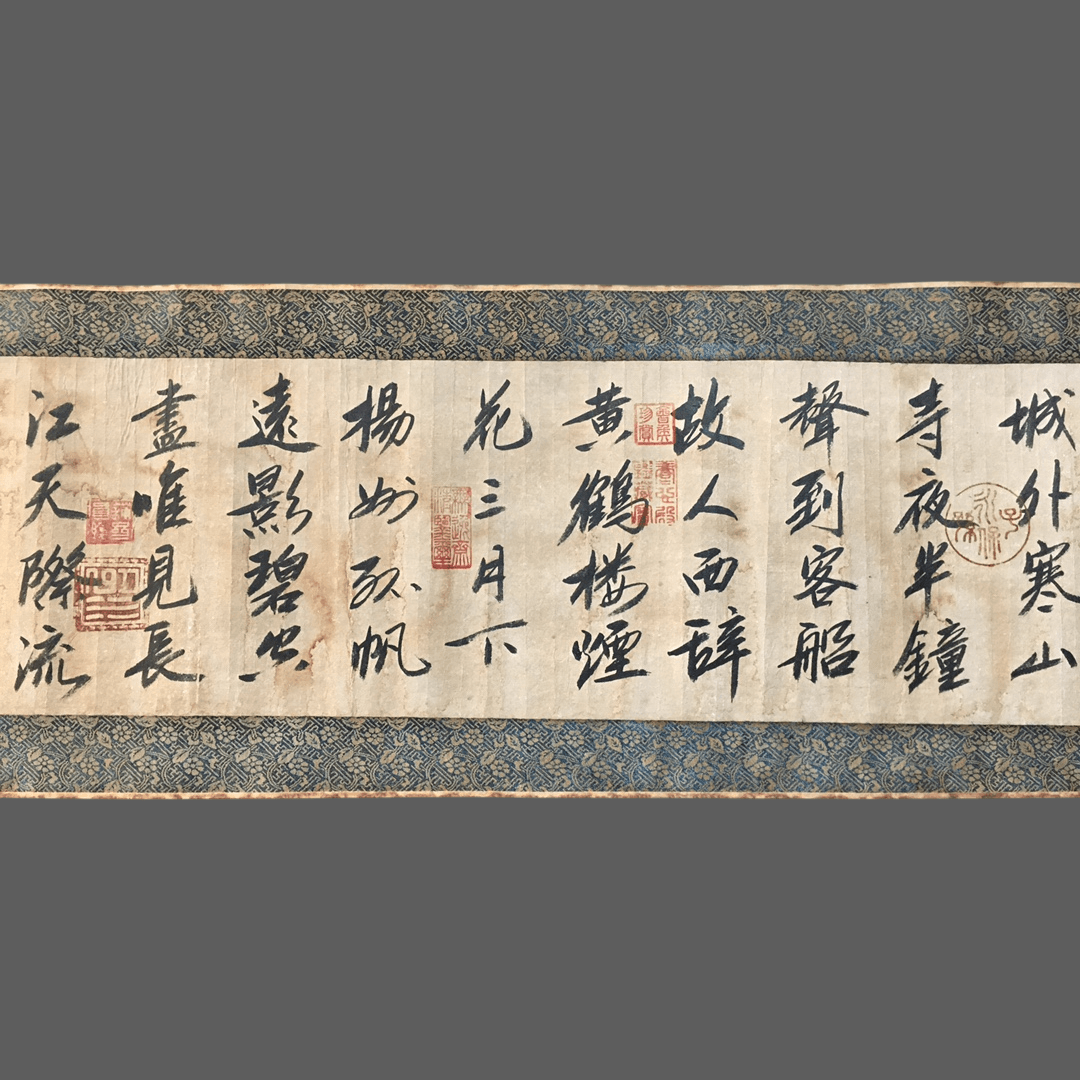 城外寒山
寺夜半鐘
聲到客船
故人西辞
黄鶴楼煙
花三月下
楊州孤帆
遠影碧空
盡唯見長
江天際流